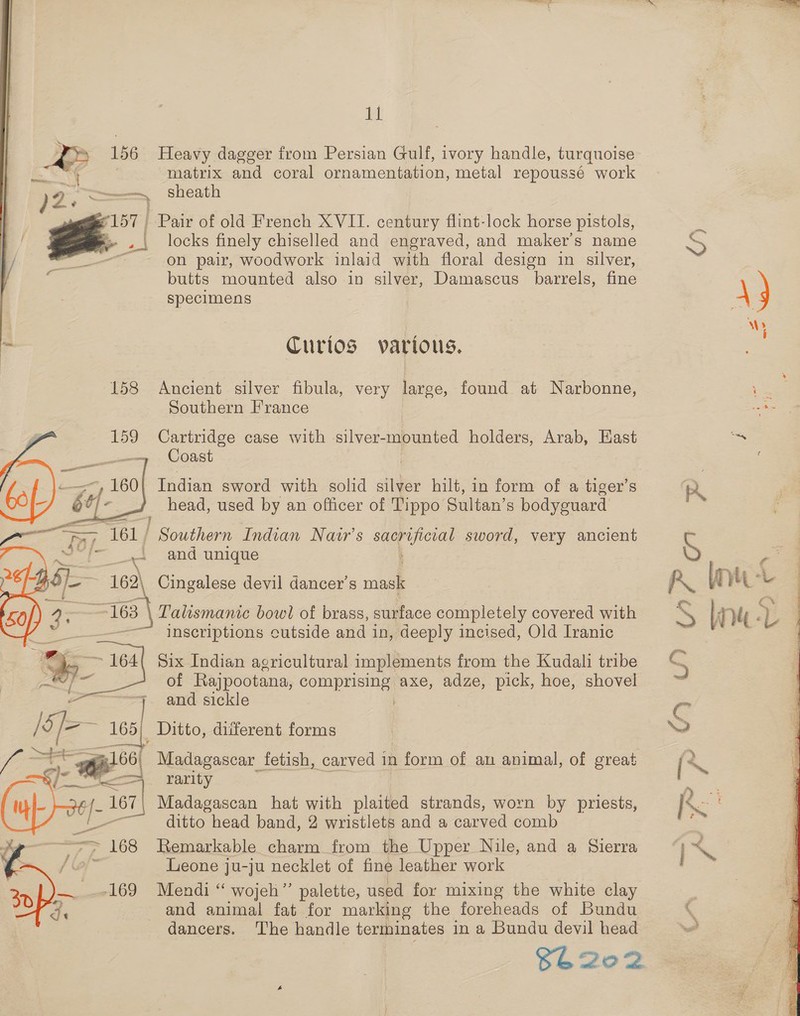 11
156 Heavy dagger from Persian Gulf, ivory handle, turquoise
matrix and coral ornamentation, metal repoussé work
sheath
157 Pair of old French XVII. century flint-lock horse pistols,
locks finely chiselled and engraved, and maker's name
on pair, woodwork inlaid with floral design in silver,
butts mounted also in silver, Damascus barrels, fine
specimens
Curios various.
158 Ancient silver fibula, very large, found at Narbonne,
Southern France
159 Cartridge case with silver-mounted holders, Arab, East
Coast
160 Indian sword with solid silver hilt, in form of a tiger's
head, used by an officer of Tippo Sultan's bodyguard
161 Southern Indian Nair's sacrificial sword, very ancient
and unique
162 Cingalese devil dancer's mask
163 Talismanic bowl of brass, surface completely covered with
inscriptions outside and in, deeply incised, Old Iranic
164 Six Indian agricultural implements from the Kudali tribe
of Rajpootana, comprising axe, adze, pick, hoe, shovel
and sickle
15/- 165 Ditto, different forms
166 Madagascar fetish, carved in form of an animal, of great
rarity
167 Madagascan hat with plaited strands, worn by priests,
ditto head band, 2 wristlets and a carved comb
168 Remarkable charm from the Upper Nile, and a Sierra
Leone ju-ju necklet of fine leather work
169 Mendi “wojeh” palette, used for mixing the white clay
and animal fat for marking the foreheads of Bundu
dancers. The handle terminates in a Bundu devil head